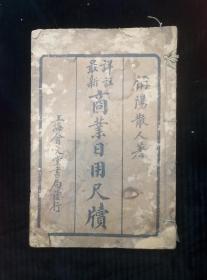 陽散人著
詳註
最新
商業日用尺牘
上海會文堂書局發行